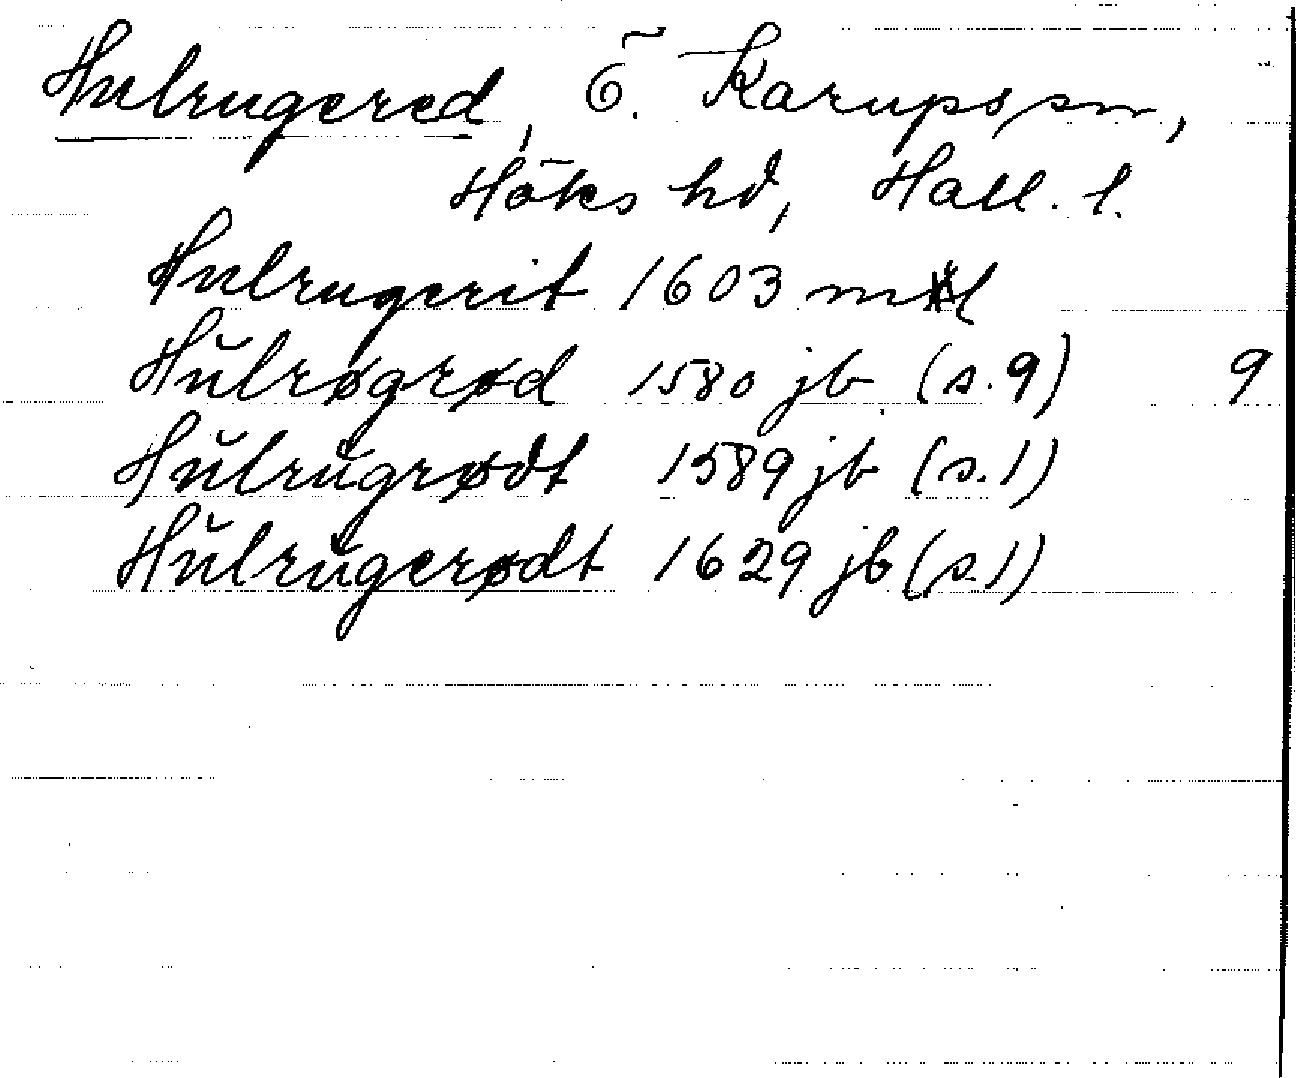 Hulrugered, Ö. Karups sn,
Höks hd, Hall. l.
Hulrugerit 1603 mtl
Hŭlrøgrød 1580 jb (s. 9) 9
Hŭlrŭgrødt 1589 jb (s. 1)
Hŭlrŭgerødt 1629 jb (s. 1)